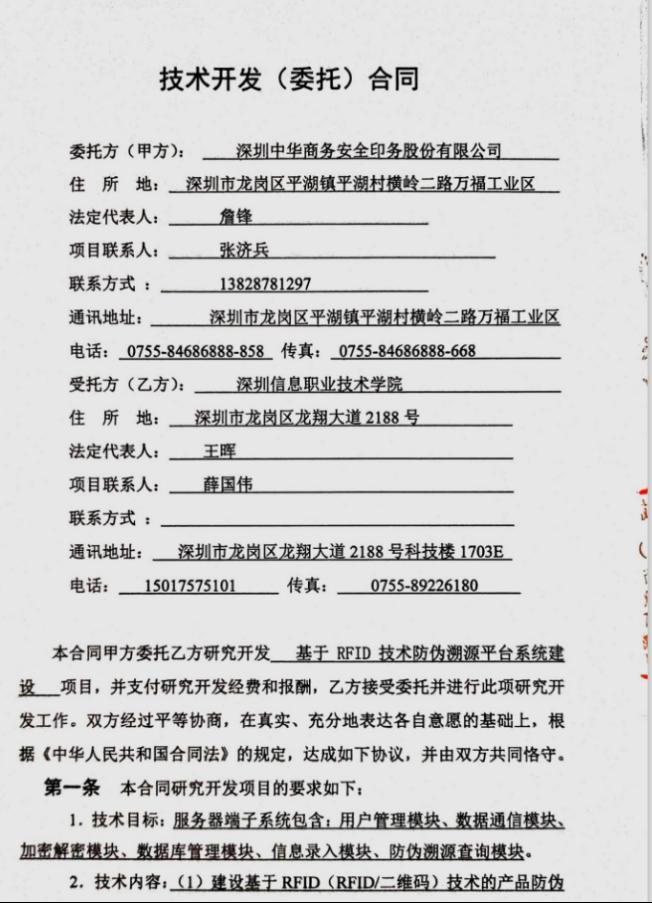 技术开发（委托）合同
委托方（甲方）： 深圳中华商务安全印务股份有限公司
住 所 地： 深圳市龙岗区平湖镇平湖村横岭二路万福工业区
法定代表人： 詹锋
项目联系人： 张济兵
联系方式 ： 13828781297
通讯地址： 深圳市龙岗区平湖镇平湖村横岭二路万福工业区
电话： 0755-84686888-858 传真： 0755-84686888-668
受托方（乙方）： 深圳信息职业技术学院
住 所 地： 深圳市龙岗区龙翔大道 2188 号
法定代表人： 王晖
项目联系人： 薛国伟
联系方式 ：
通讯地址： 深圳市龙岗区龙翔大道 2188 号科技楼 1703E
电话： 15017575101 传真： 0755-89226180
本合同甲方委托乙方研究开发 基于 RFID 技术防伪溯源平台系统建
设 项目，并支付研究开发经费和报酬，乙方接受委托并进行此项研究开
发工作。双方经过平等协商，在真实、充分地表达各自意愿的基础上，根
据《中华人民共和国合同法》的规定，达成如下协议，并由双方共同恪守。
第一条 本合同研究开发项目的要求如下：
1．技术目标：服务器端子系统包含：用户管理模块、数据通信模块、
加密解密模块、数据库管理模块、信息录入模块、防伪溯源查询模块。
2．技术内容：（1）建设基于 RFID（RFID/二维码）技术的产品防伪